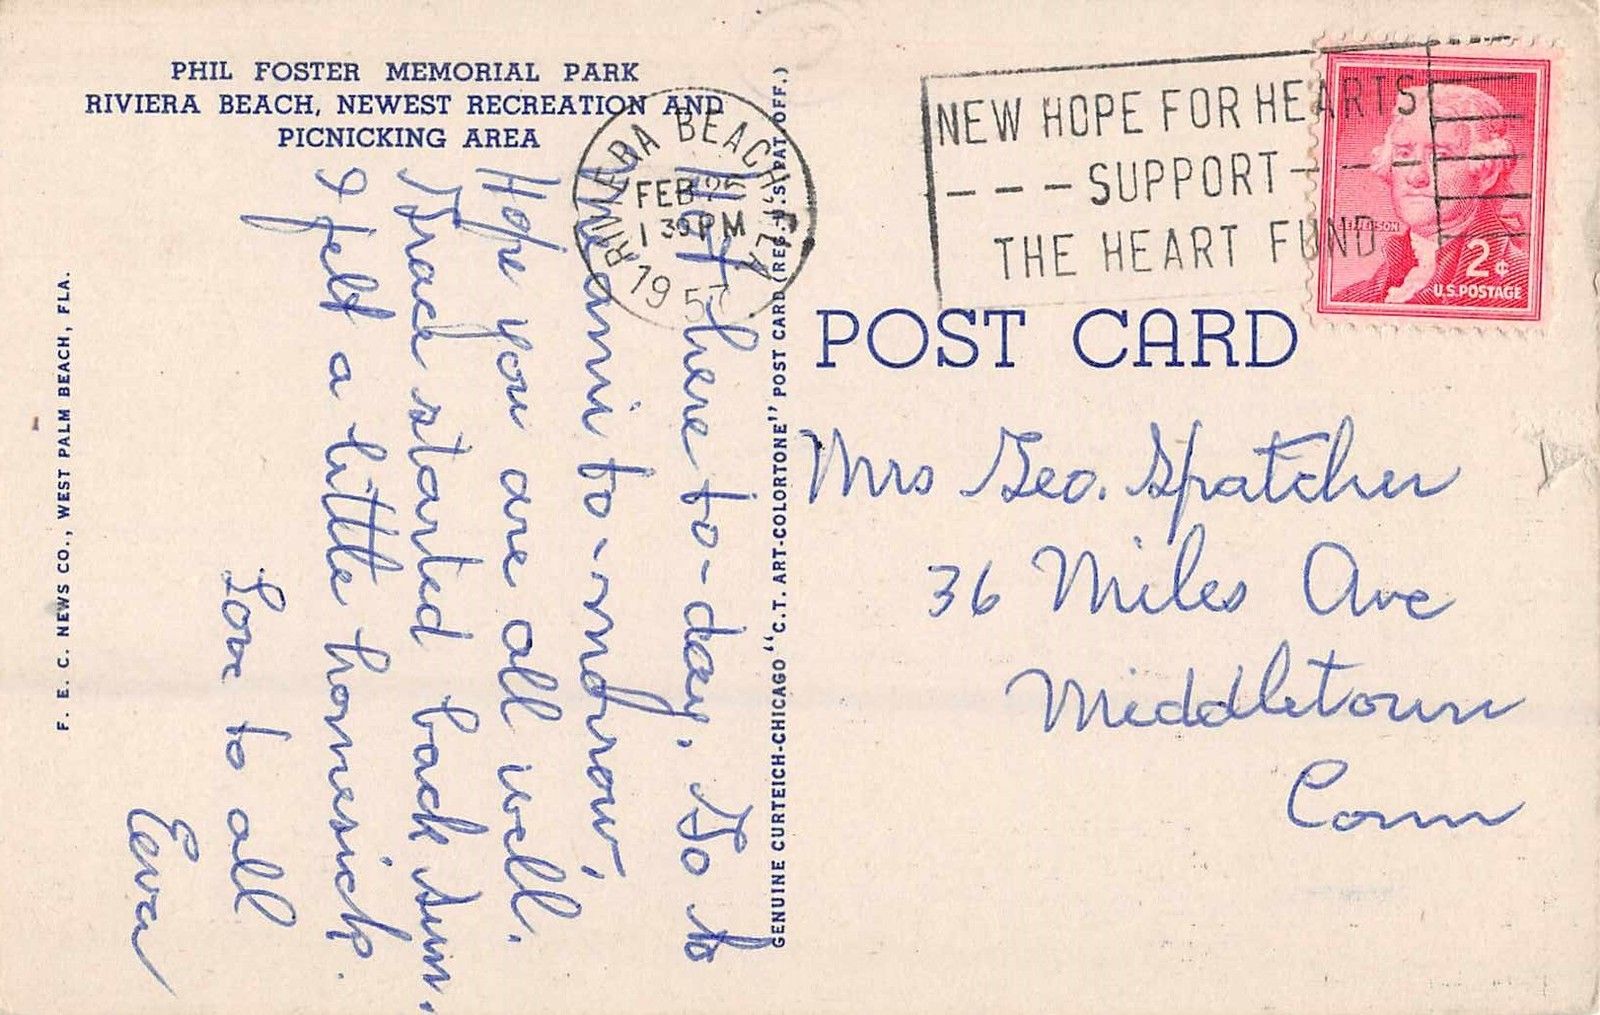 PHIL FOSTER MEMORIAL PARK
RIVIERA BEACH, NEWEST RECREATION AND
PICNICKING AREA
Hot here to-day. Go to
Miami to-morrow,
Hope you are all well.
Grace started back Sun.
I felt a little homesick.
Love to all
F. E. C. NEWS CO., WEST PALM BEACH, FLA.
GENUINE CURTEICH-CHICAGO "C.T. ART-COLORTONE" POST CARD (REG. U.S. PAT. OFF.)
RIVIERA BEACH FLA.
FEB 25
1 30 PM
195
NEW HOPE FOR HEARTS
---SUPPORT---
THE HEART FUND
JEFFERSON
2¢
U.S. POSTAGE
POST CARD
Mrs Geo. Spatcher
36 Miles Ave
Middletown
Conn